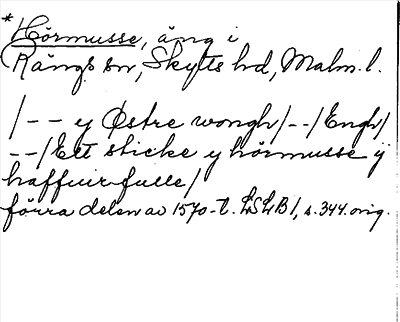 * Hörmusse, äng i
Rängs sn, Skytts hd, Malm. l.
/-- y Østre wongh/--/Engh/
--/Ett sticke y hörmusse ÿ
haffuir fulle/
förra delen av 1570-t. LSLB 1, s. 344. orig.